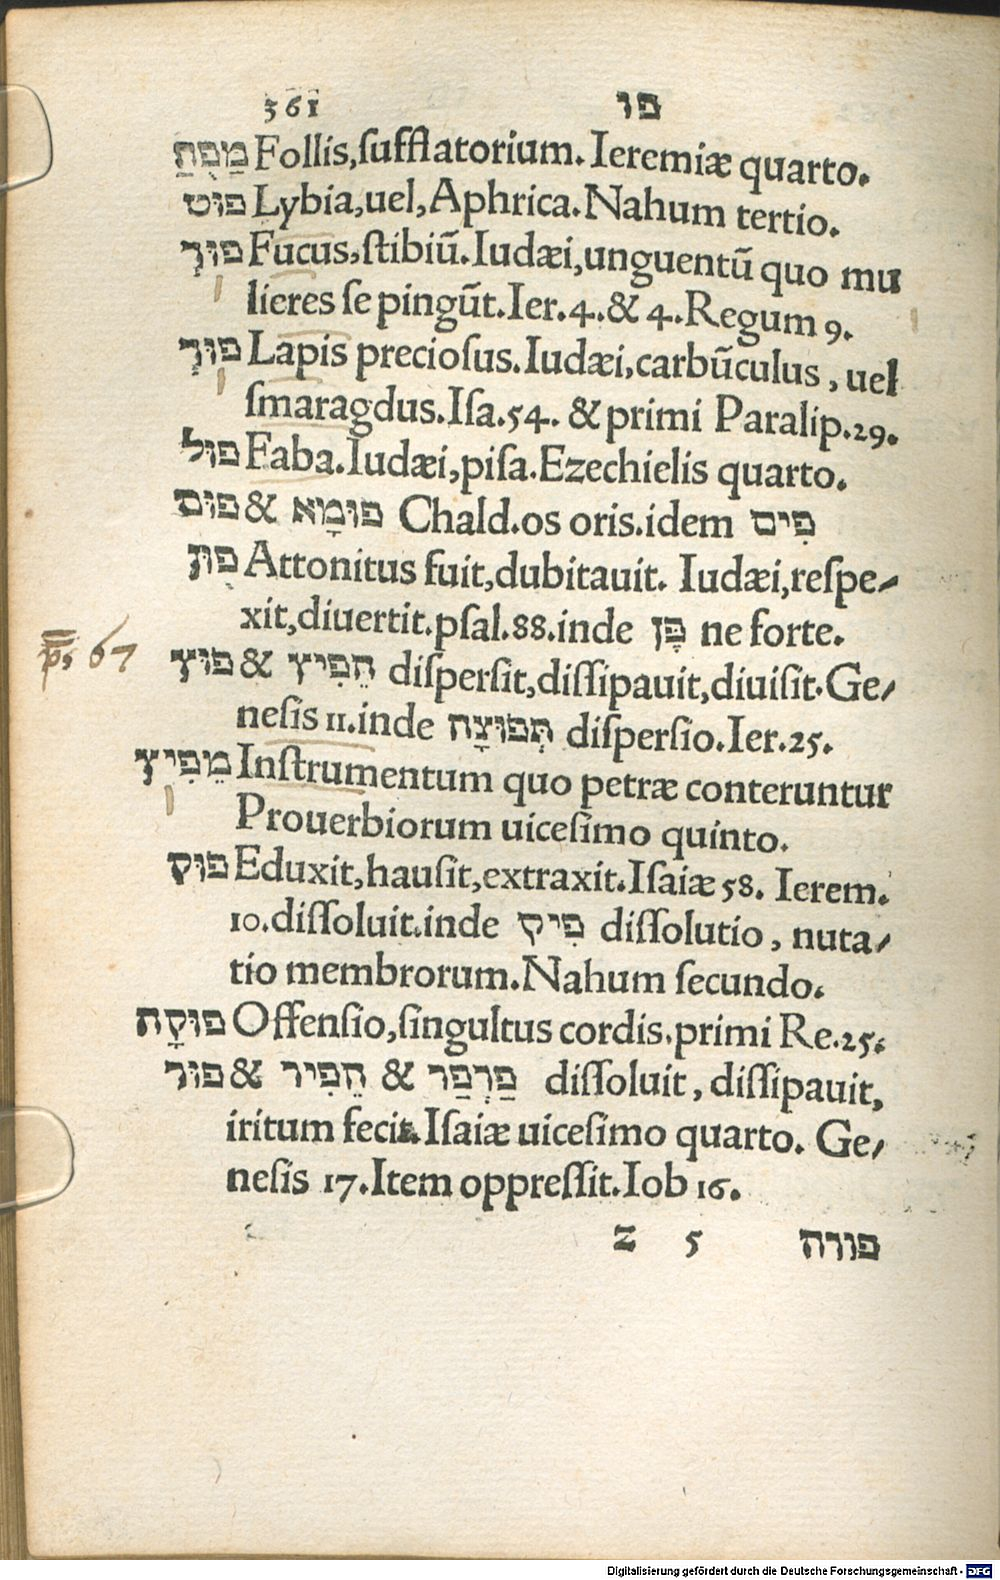 361 פו
מַפֻּחַ Follis,ſufflatorium. Ieremiæ quarto.
פּוּט Lybia,uel,Aphrica.Nahum tertio.
פּוּךְ Fucus,ſtibiū.Iudæi,unguentū quo mu
lieres ſe pingūt.Ier.4.& 4.Regum 9.
פּוּךְ Lapis precioſus.Iudæi,carbūculus, uel
ſmaragdus.Iſa.54. & primi Paralip.29.
פּוּל Faba.Iudæi,piſa.Ezechielis quarto.
פּוּם & פּוּמָא Chald.os oris.idem פִּים
פֻּן Attonitus fuit,dubitauit. Iudæi,reſpe⸗
xit,diuertit.pſal.88.inde פֶּן ne forte.
ps 67
פּוּץ & הֵפִיץ diſperſit,diſſipauit,diuiſit.Ge⸗
neſis 11.inde תְּפוּצָה diſperſio.Ier.25.
מֵפִיץ Inſtrumentum quo petræ conteruntur
Prouerbiorum uiceſimo quinto.
פּוּק Eduxit,hauſit,extraxit.Iſaiæ 58. Ierem.
10.diſſoluit.inde פִּיק diſſolutio, nuta⸗
tio membrorum.Nahum ſecundo.
פּוּקָה Offenſio,ſingultus cordis.primi Re.25.
פּוּר & הֵפִיר & פַּרְפַּר diſſoluit, diſſipauit,
iritum fecit.Iſaiæ uiceſimo quarto. Ge⸗
neſis 17.Item oppreſſit.Iob 16.
Z 5 פורה
Digitalisierung gefördert durch die Deutsche Forschungsgemeinschaft - DFG